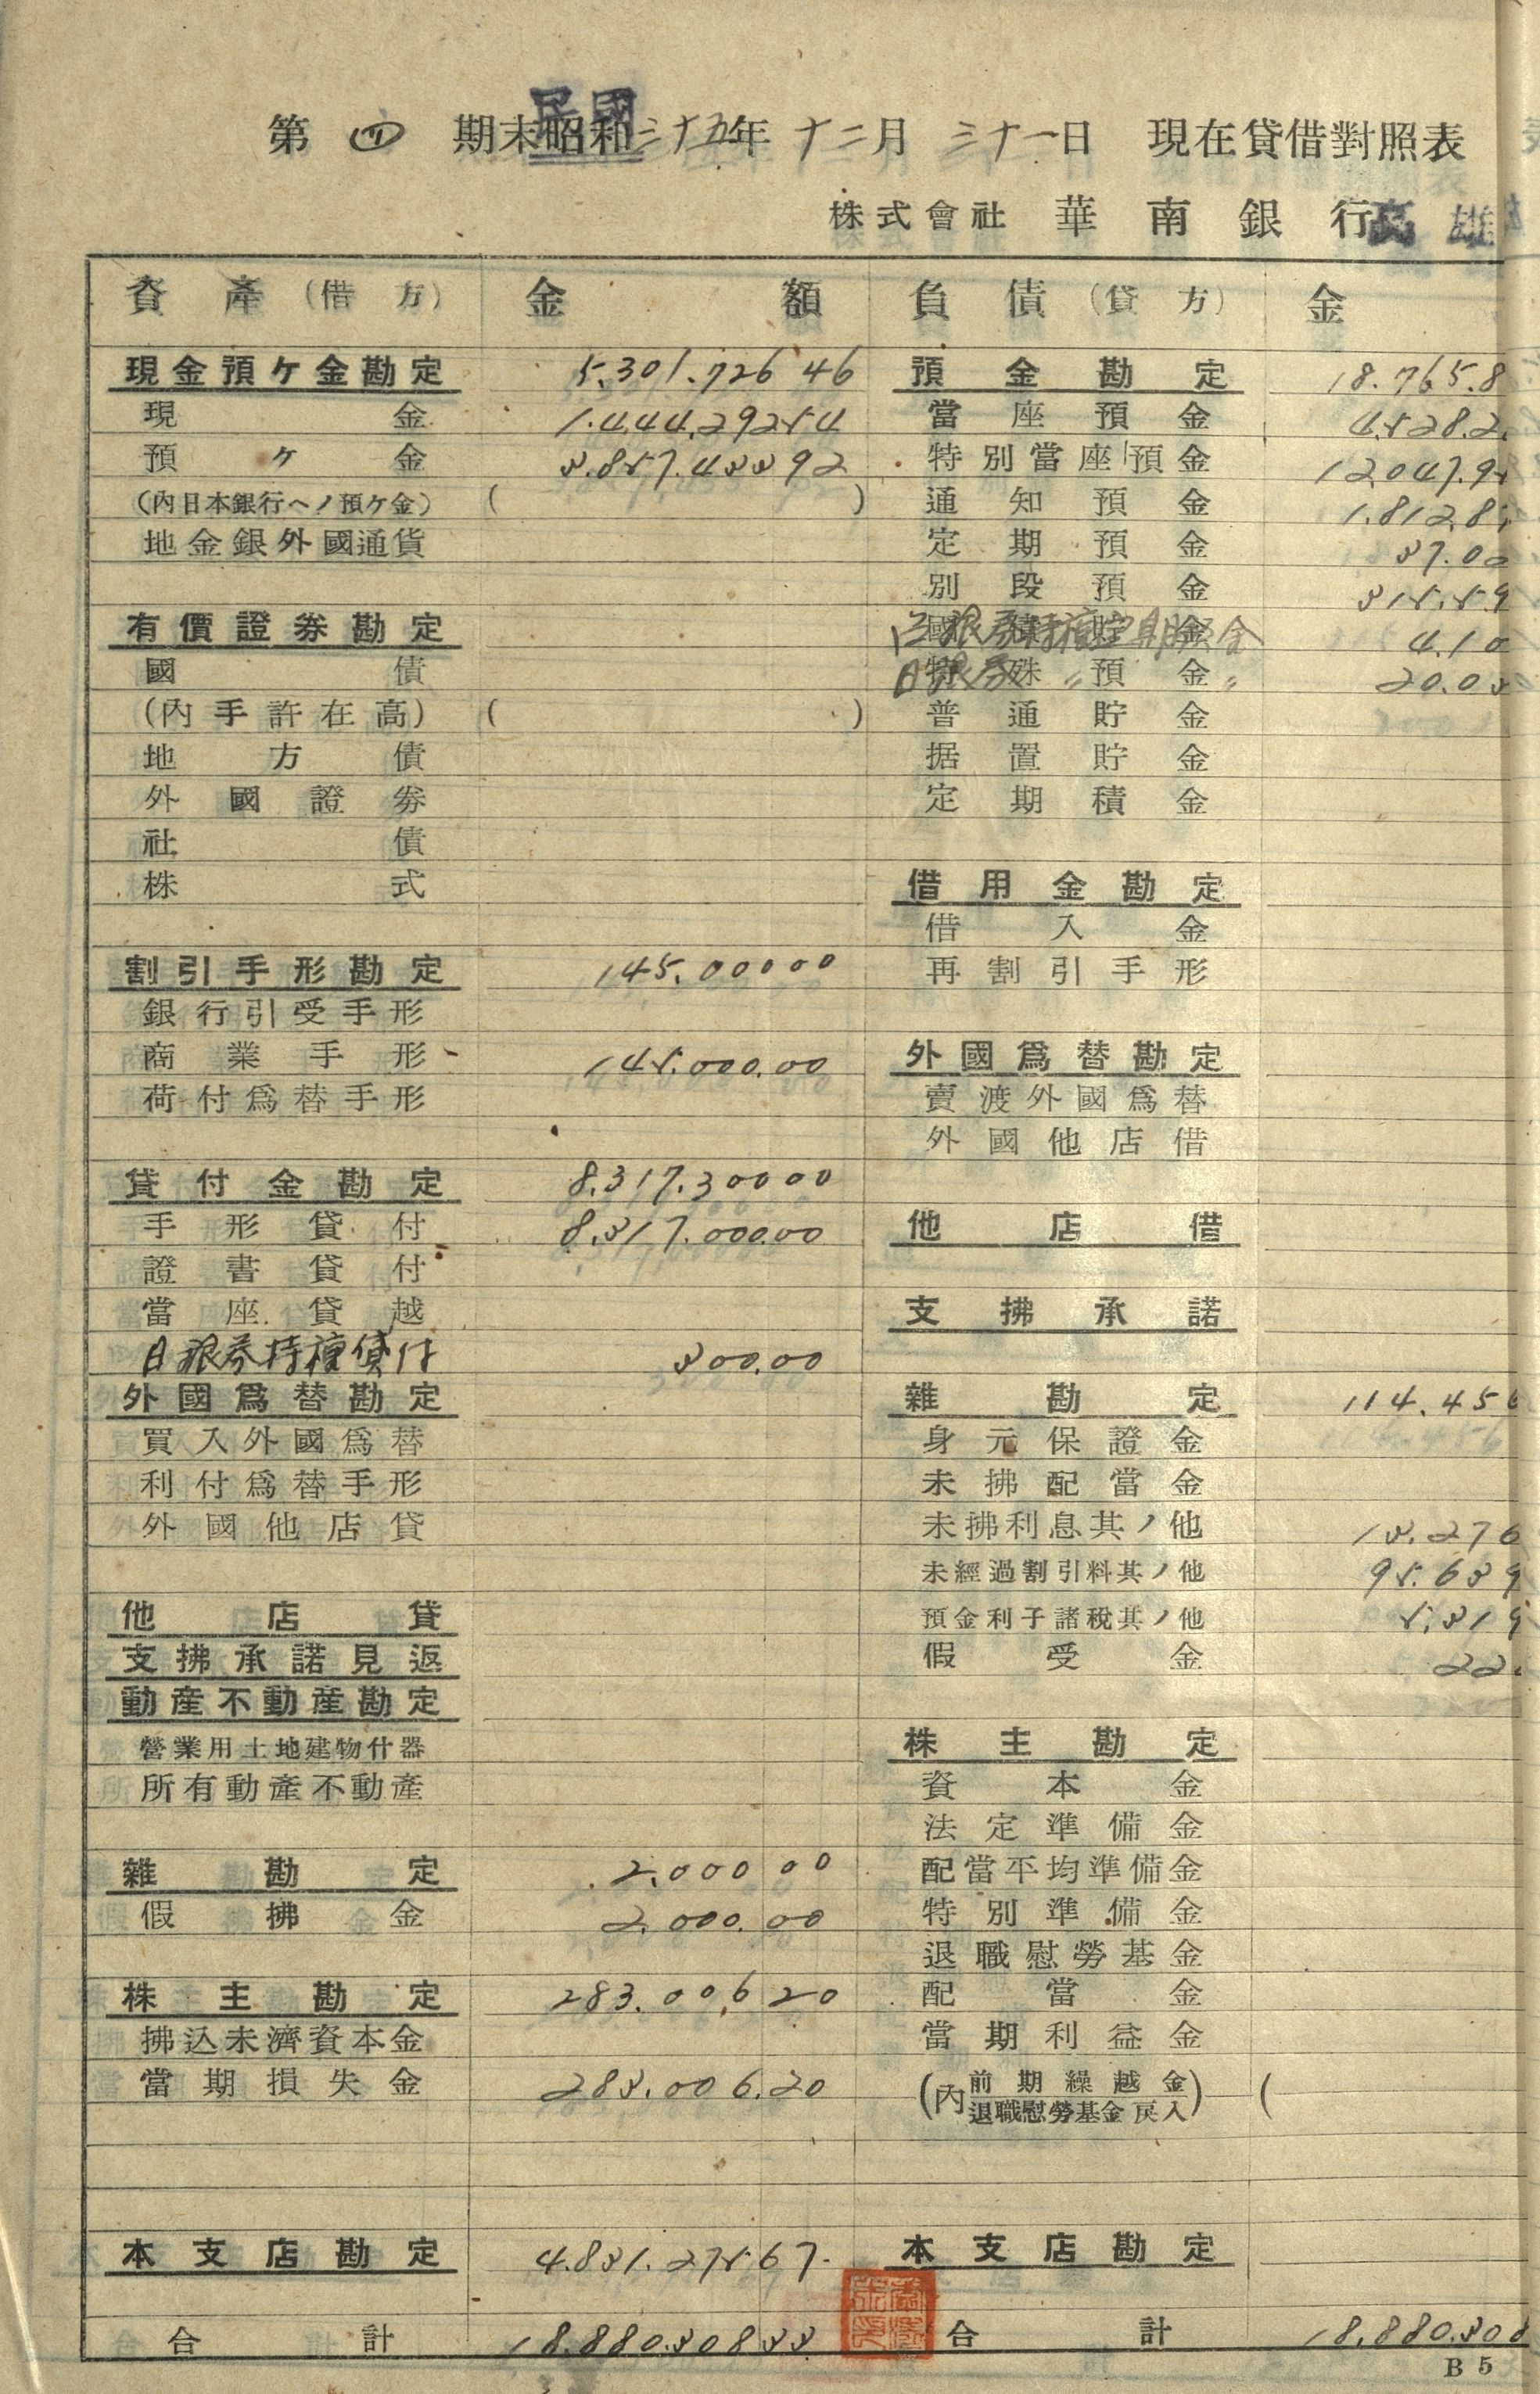 第 四 期末昭和三十五年 十二月 三十一日 現在貸借對照表
民國
株式會社 華南銀行高雄
資產(借方) 金額 負債(貸方) 金
現金預ケ金勘定 5.301.726 46 預金勘定 18.765.8
現金 1.444.292 54 當座預金 4.528.2
預ケ金 3.857.433 92 特別當座預金 12.047.95
(內日本銀行ヘノ預ケ金) ( ) 通知預金 1.812.8
地金銀外國通貨 定期預金 37.00
別段預金 315.59
有價證券勘定 4.10
國債 特殊預金 20.03
(內手許在高) ( ) 普通貯金
地方債 据置貯金
外國證券 定期積金
社債
株式 借用金勘定
借入金
割引手形勘定 145.000 00 再割引手形
銀行引受手形
商業手形 145.000.00 外國爲替勘定
荷付爲替手形 賣渡外國爲替
外國他店借
貸付金勘定 8.317.300 00
手形貸付 8.317.000.00 他店借
證書貸付
當座貸越 支拂承諾
日銀券特種貸付 300.00
外國爲替勘定 雜勘定 114.456
買入外國爲替 身元保證金
利付爲替手形 未拂配當金
外國他店貸 未拂利息其ノ他 13.276
未經過割引料其ノ他 95.639
他店貸 預金利子諸稅其ノ他 5.319
支拂承諾見返 假受金 22
動産不動産勘定
營業用土地建物什器 株主勘定
所有動產不動產 資本金
法定準備金
雜勘定 2.000 00 配當平均準備金
假拂金 2.000.00 特別準備金
退職慰勞基金
株主勘定 283.006 20 配當金
拂込未濟資本金 當期利益金
當期損失金 283.006.20 (內前期繰越金 退職慰勞基金戾入) (
本支店勘定 4.831.275 67 本支店勘定
合計 18.880.308 33 合計 18.880.308
B 5